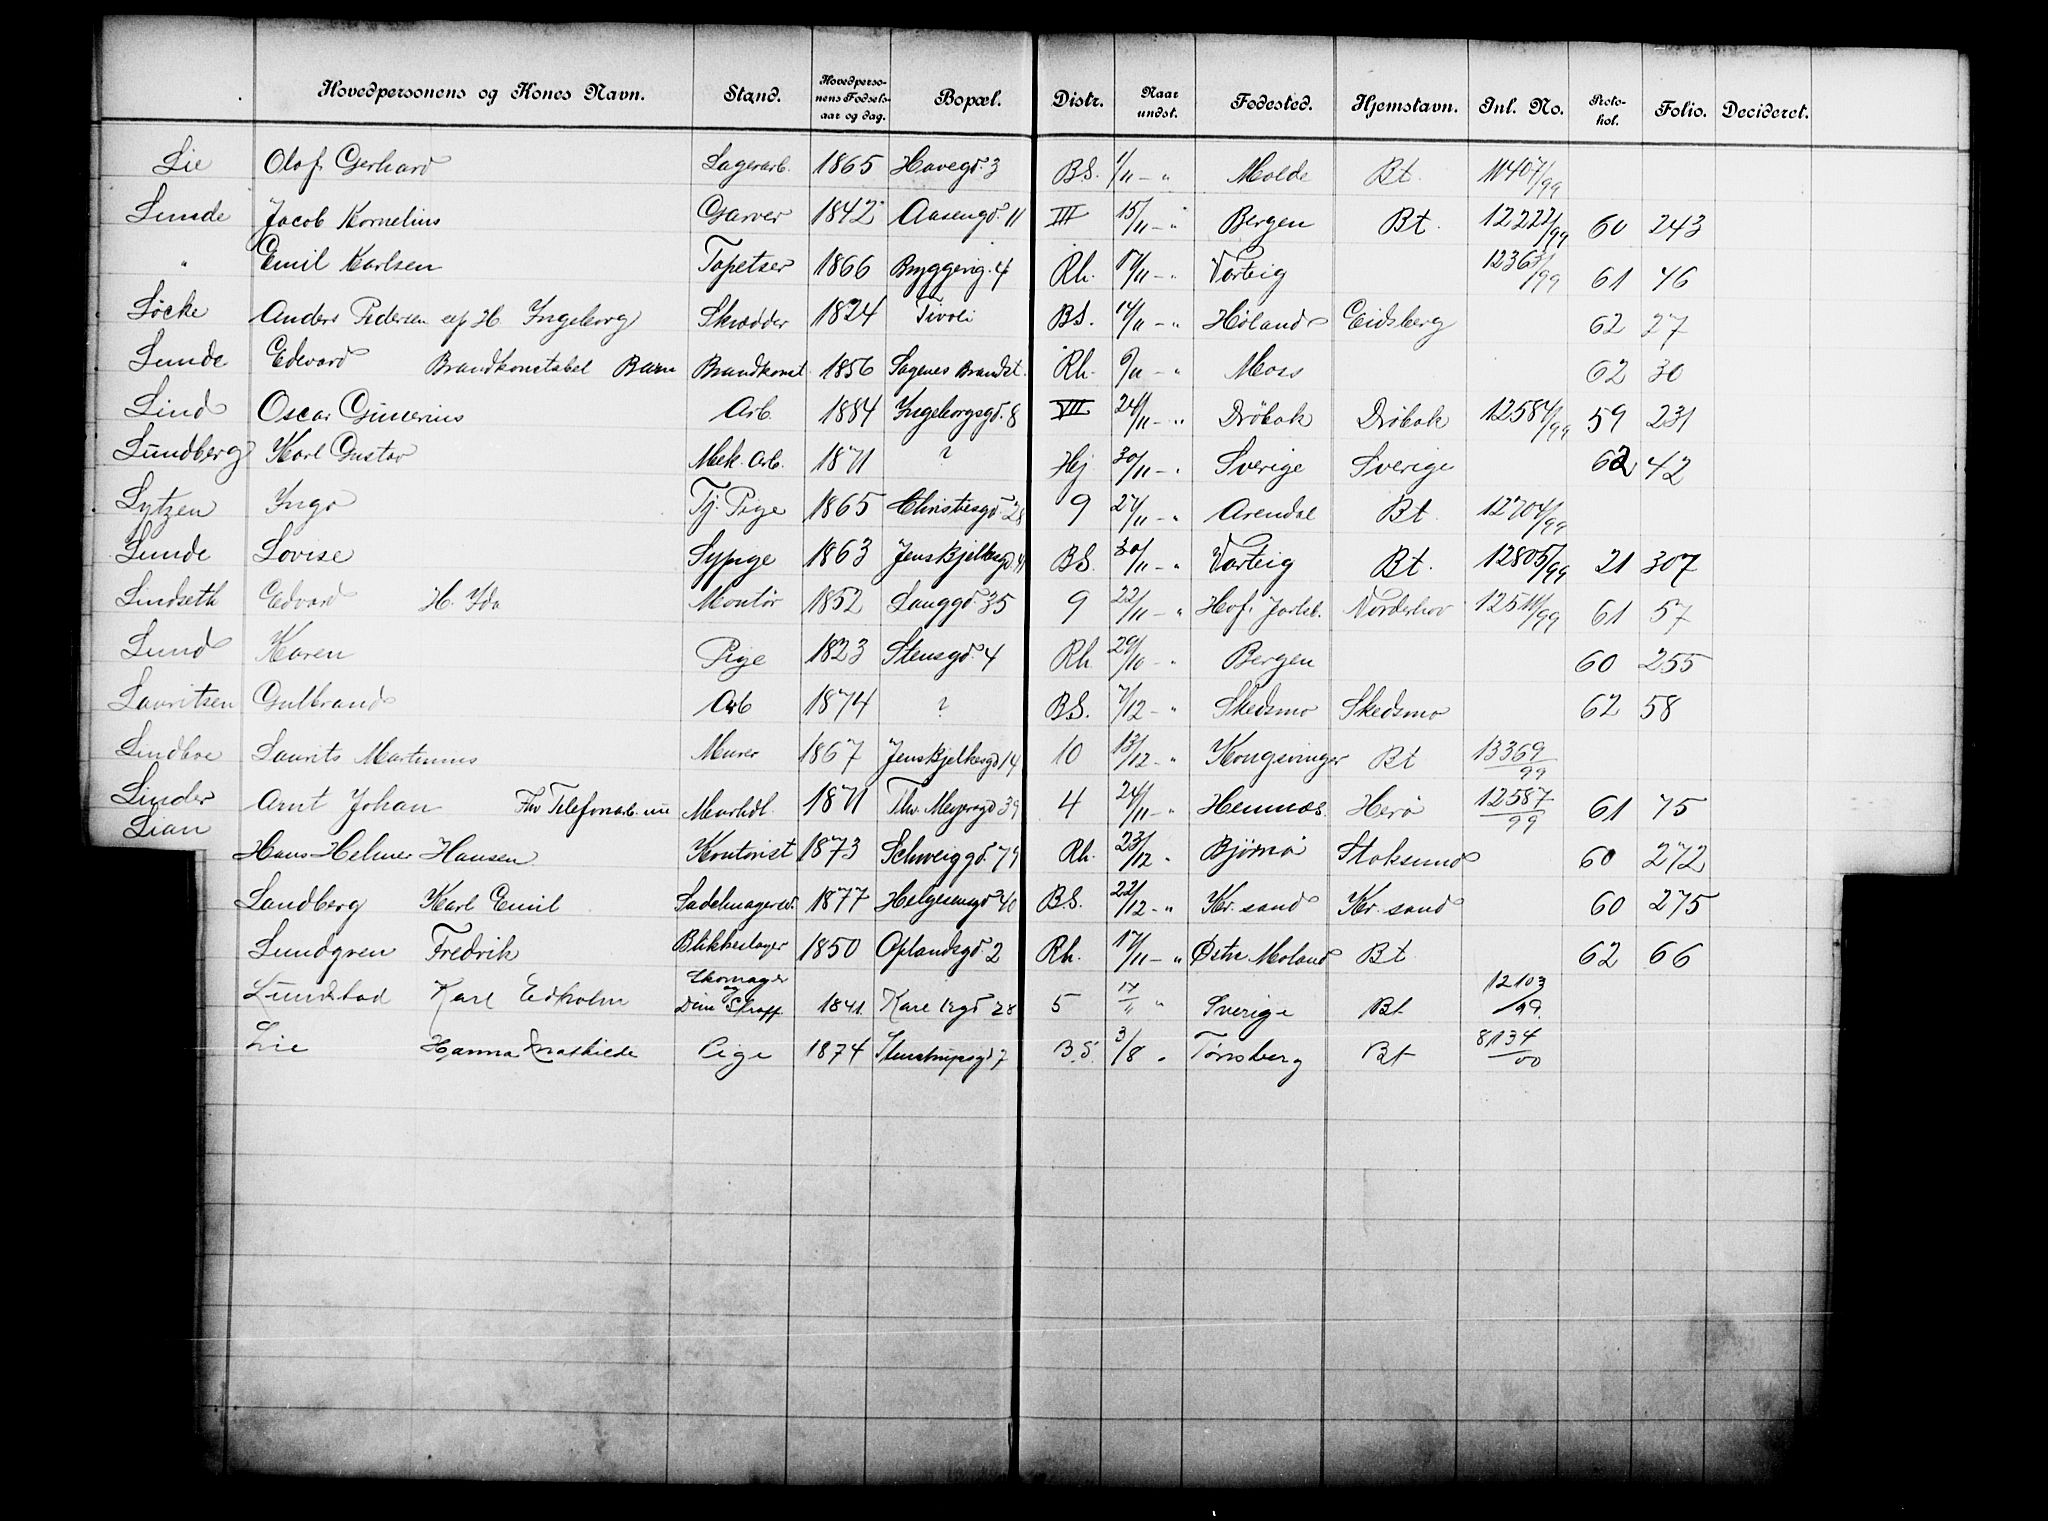 Hovedpersonens og Kones Navn. Stand. Hovedperso-nens Fødsels-aar og dag. Bopæl. Distr. Naar undst. Fødested. Hjemstavn. Inl. No. Proto-kol. Folio. Decideret.
Lie Olaf Gerhard Lagerarb. 1865 Havegd. 3 B.S. 1/11 - " Molde Bt. 11407/99
Lunde Jacob Kornelius Garver 1842 Aasengd. 11 III 15/11 - " Bergen Bt. 12222/99 60 243
" Emil Karlsen Tapetser 1866 Bryggerig. 4 Rh. 17/11 - " Varteig 12363/99 61 46
Löcke Anders Pedersen H. Ingeborg Skrædder 1824 Tivoli B.S. 14/11 - " Høland Eidsberg 62 27
Lunde Edevard Brandkonstabel Barn Brandkonst. 1856 Sagenes Brandst. Rh. 6/11 - " Moss 62 30
Lind Oscar Gunerius Arb. 1884 Ingeborgsgd. 8 VII 24/11 - " Drøbak Drøbak 12584/99 59 231
Lundberg Karl Gustav Mek. Arb. 1871 ? Hj 30/11 - " Sverige Sverige 62 42
Lytzen Inga Tj. Pige 1865 Christiesgd 28 9 27/11 - " Arendal Bt. 12704/99
Lunde Lovise Sypige 1863 Jens Bjelkesgd. B.S. 30/11 - " Varteig Bt. 12805/99 21 307
Lindseth Edvard H. Ida Montør 1852 Langgd. 35 9 22/11 - " Hof. Jarlsb. Norderhov 12511/99 61 57
Lund Karen Pige 1823 Stensgd. 4 Rh. 29/10 - " Bergen 60 255
Lauritsen Gulbrand Arb 1874 ? B.S. 7/12 - " Skedsmo Skedsmo 62 58
Lindboe Laurits Martinius Murer 1867 Jens Bjelkesgd 14 10 13/12 - " Kongsvinger Bt 13369/99
Linder Arnt Johan Fhv Telefonarb. nu Murhdl. 1871 Thv. Meyersgd 39 4 24/11 - " Hemnæs Herø 12587/99 61 75
Lian Hans Helmer Hansen Kontorist 1873 Schweiggd. 79 Rh. 23/12 " Bjørnør Stoksund 60 272
Landberg Karl Emil Sadelmagersv. 1877 Helgesensgd 40 B.S. 22/12 - " Kr. sand Kr. sand 60 275
Lundgren Fredrik Blikkenslager 1850 Oplandsgd. 2 Rh. 17/11 - " Østre Moland Bt 62 66
Lundstad Karl Edholm Skomager og Dim Straff. 1841. Karl XIIgd 28 5 17/11 " Sverige Bt 12103/99.
Lie Hanna Mathilde Pige 1874 Stenstrupsgd 7 B.S. 3/8 " Tønsberg Bt 8134/00